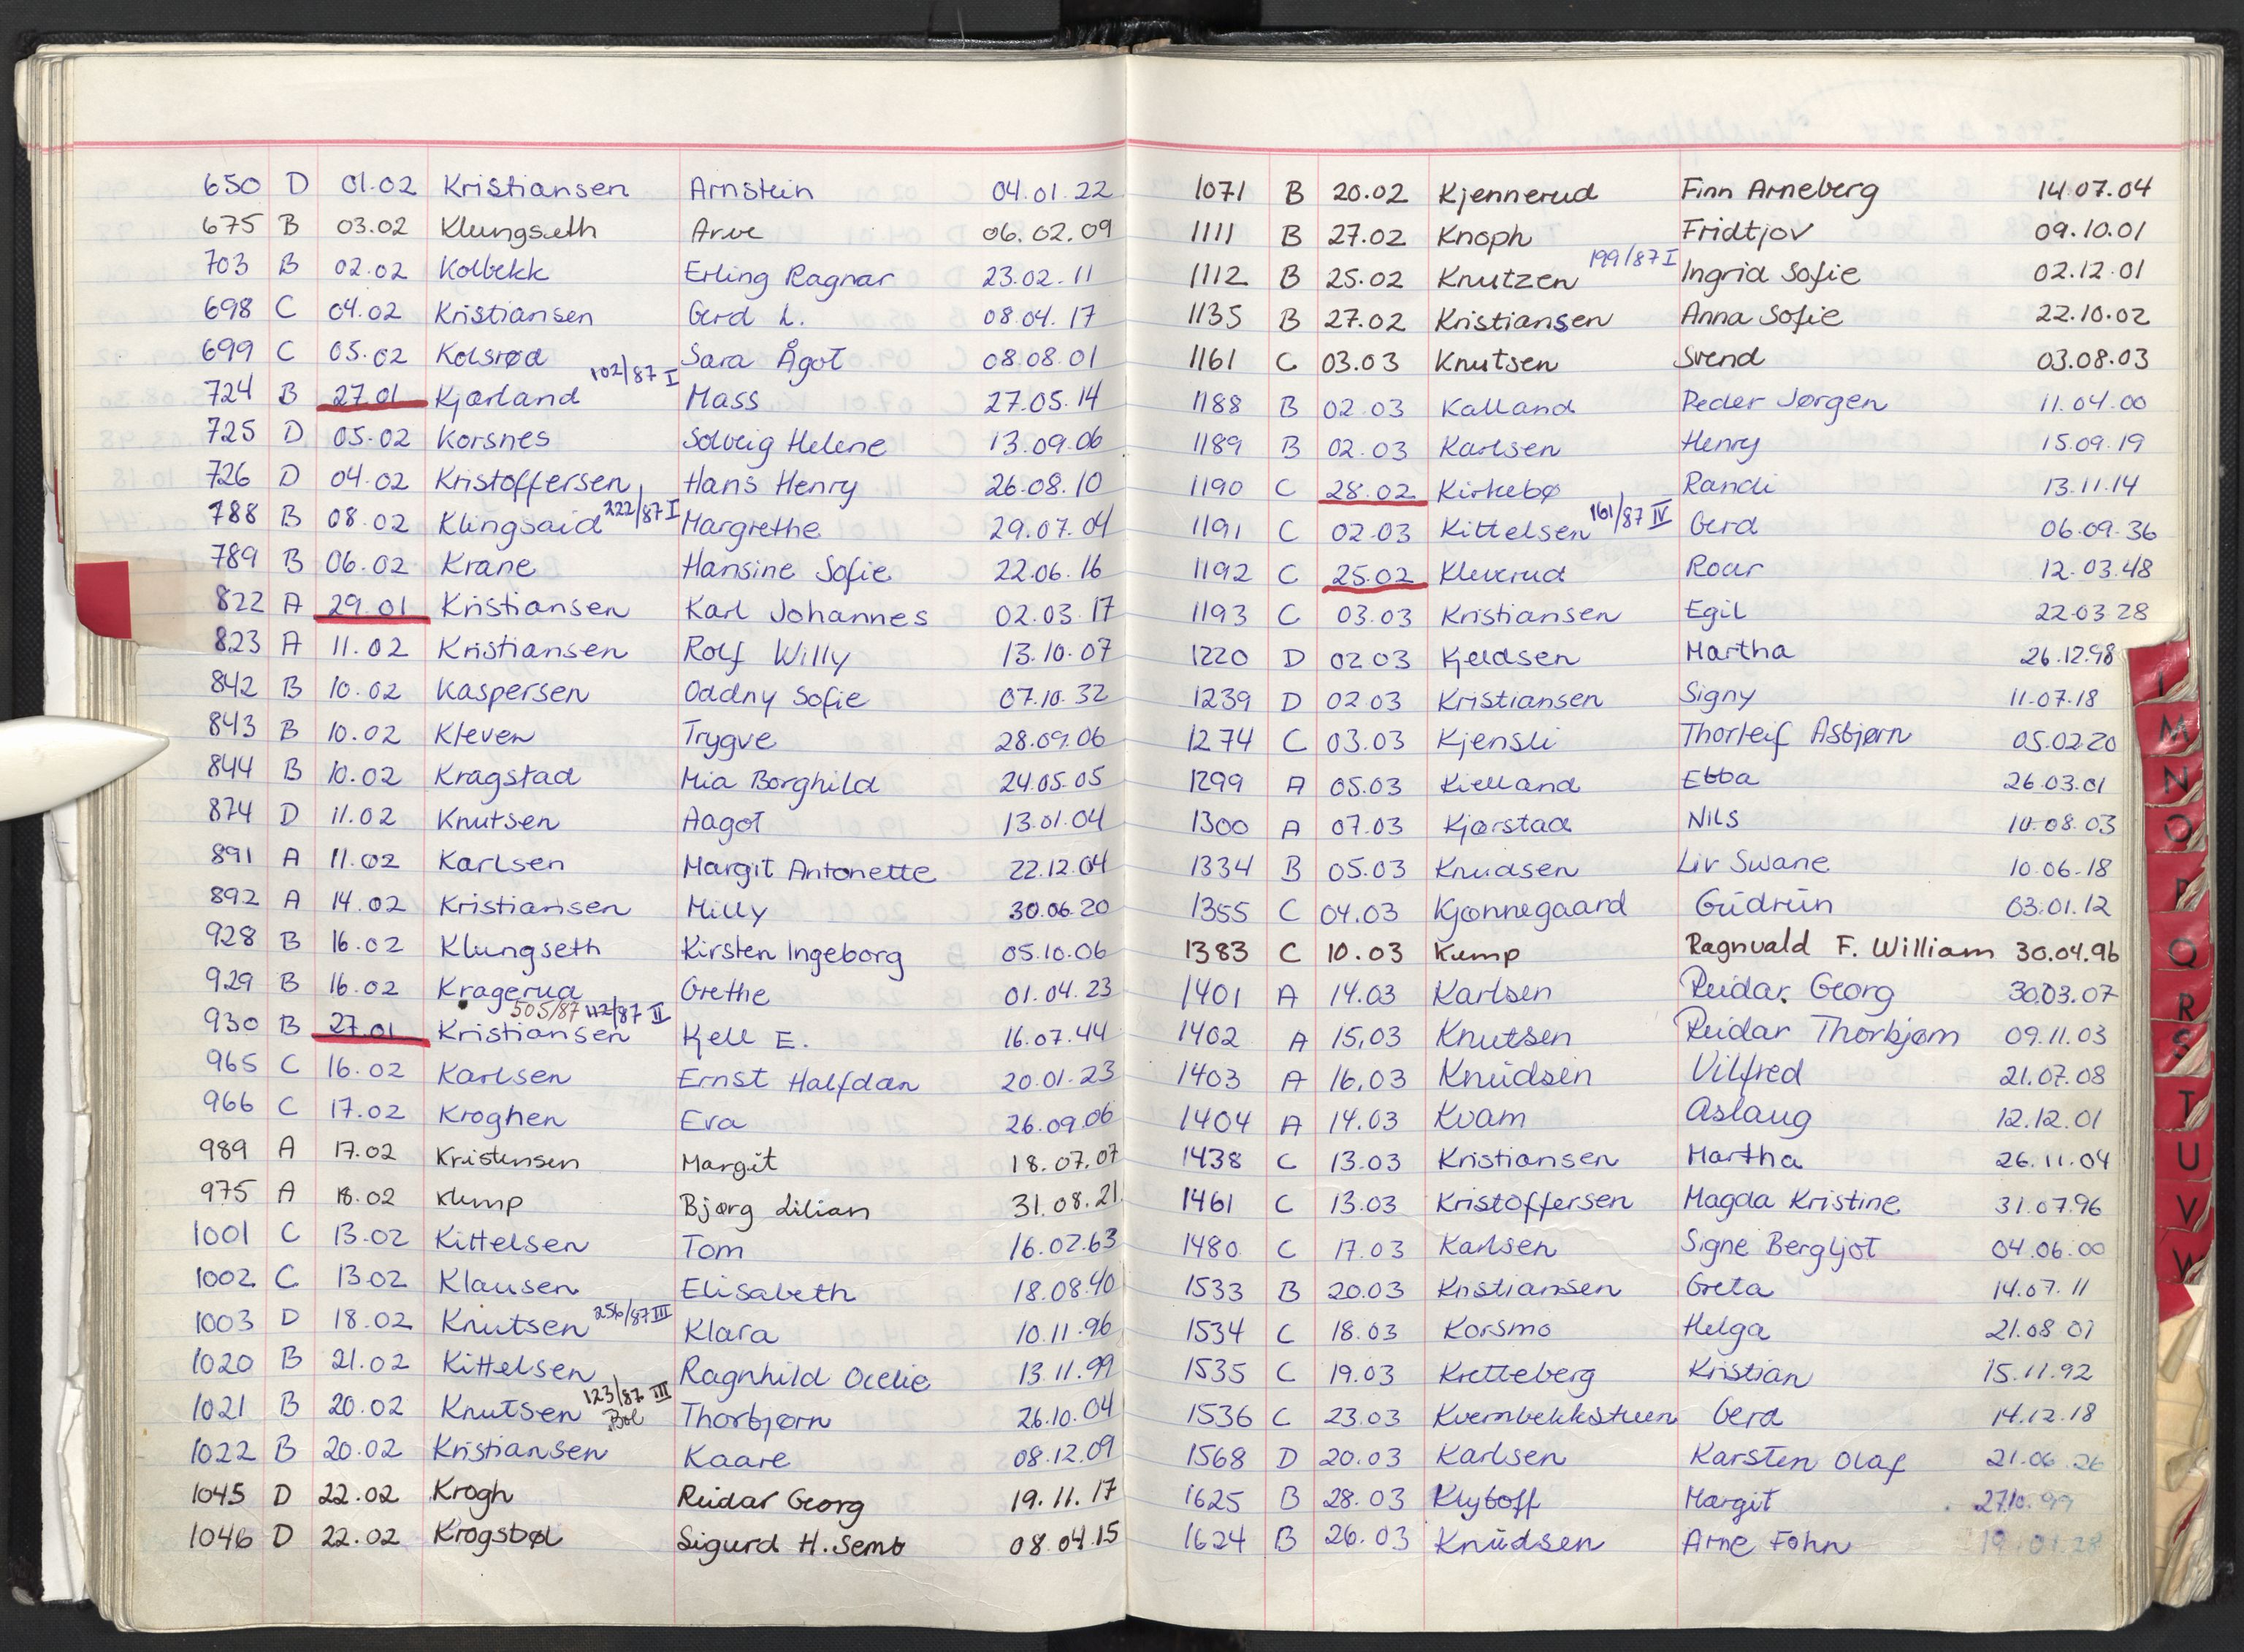 650 D 01.02 Kristiansen Arnstein 04.01.22
675 B 03.02 Klungseth Arve 06.02.09
703 B 02.02 Kolbekk Erling Ragnar 23.02.11
698 C 04.02 Kristiansen Gerd L. 08.04.17
699 C 05.02 Kolsrød Sara Ågot 08.08.01
102/87 I
724 B 27.01 Kjærland Mass 27.05.14
725 D 05.02 Korsnes Solveig Helene 13.09.06
726 D 04.02 Kristoffersen Hans Henry 26.08.10
788 B 08.02 Klingsaid 222/87 I Margrethe 29.07.04
789 B 06.02 Krane Hansine Sofie 22.06.16
822 A 29.01 Kristiansen Karl Johannes 02.03.17
823 A 11.02 Kristiansen Rolf Willy 13.10.07
842 B 10.02 Kaspersen Oddny Sofie 07.10.32
843 B 10.02 Kleven Trygve 28.09.06
844 B 10.02 Kragstad Mia Borghild 24.05.05
874 D 11.02 Knutsen Aagot 13.01.04
891 A 11.02 Karlsen Margit Antonette 22.12.04
892 A 14.02 Kristiansen Milly 30.06.20
928 B 16.02 Klungseth Kirsten Ingeborg 05.10.06
929 B 16.02 Kragerud Grethe 01.04.23
505/87 112/87 II
930 B 27.01 Kristiansen Kjell E. 16.07.44
965 C 16.02 Karlsen Ernst Halfdan 20.01.23
966 C 17.02 Kroghen Eva 26.09.06
989 A 17.02 Kristensen Margit 18.07.07
975 A 18.02 Klump Bjørg Lilian 31.08.21
1001 C 13.02 Kittelsen Tom 16.02.63
1002 C 13.02 Klausen Elisabeth 18.08.40
1003 D 18.02 Knutsen 256/87 III Klara 10.11.96
1020 B 21.02 Kittelsen Ragnhild Ocelie 13.11.99
123/87 III
1021 B 20.02 Knutsen Bol Thorbjørn 26.10.04
1022 B 20.02 Kristiansen Kaare 08.12.09
1045 D 22.02 Krogh Reidar Georg 19.11.17
1046 D 22.02 Krogsbøl Sigurd H. Semb 08.04.15
1071 B 20.02 Kjennerud Finn Arneberg 14.07.04
1111 B 27.02 Knoph Fridtjov 09.10.01
199/87 I
1112 B 25.02 Knutzen Ingrid Sofie 02.12.01
1135 B 27.02 Kristiansen Anna Sofie 22.10.02
1161 C 03.03 Knutsen Svend 03.08.03
1188 B 02.03 Kalland Peder Jørgen 11.04.00
1189 B 02.03 Karlsen Henry 15.09.19
1190 C 28.02 Kirkebø Randi 13.11.14
1191 C 02.03 Kittelsen 161/87 IV Gerd 06.09.36
1192 C 25.02 Kleverud Roar 12.03.48
1193 C 03.03 Kristiansen Egil 22.03.28
1220 D 02.03 Kjeldsen Martha 26.12.98
1239 D 02.03 Kristiansen Signy 11.07.18
1274 C 03.03 Kjensli Thorleif Asbjørn 05.02.20
1299 A 05.03 Kielland Ebba 26.03.01
1300 A 07.03 Kjærstad Nils 10.08.03
1334 B 05.03 Knudsen Liv Swane 10.06.18
1355 C 04.03 Kjønnegaard Gudrun 03.01.12
1383 C 10.03 Kump Ragnvald F. William 30.04.96
1401 A 14.03 Karlsen Reidar Georg 30.03.07
1402 A 15.03 Knutsen Reidar Thorbjørn 09.11.03
1403 A 16.03 Knudsen Vilfred 21.07.08
1404 A 14.03 Kvam Aslaug 12.12.01
1438 C 13.03 Kristiansen Martha 26.11.04
1461 C 13.03 Kristoffersen Magda Kristine 31.07.96
1480 C 17.03 Karlsen Signe Bergljot 04.06.00
1533 B 20.03 Kristiansen Greta 14.07.11
1534 C 18.03 Korsmo Helga 21.08.07
1535 C 19.03 Kretteberg Kristian 15.11.92
1536 C 23.03 Kvernbekksteen Gerd 14.12.18
1568 D 20.03 Karlsen Karsten Olaf 21.06.26
1625 B 28.03 Klyboff Margit 27.10.99
1624 B 26.03 Knudsen Arne Fohn
M
N
O
P
Q
R
S
T
U
V
W